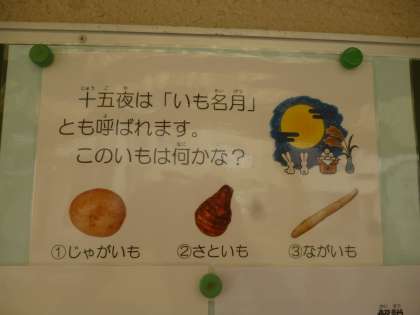 十五夜は「いも名月」
とも呼ばれます。
このいもは何かな？
①じゃがいも ②さといも ③ながいも